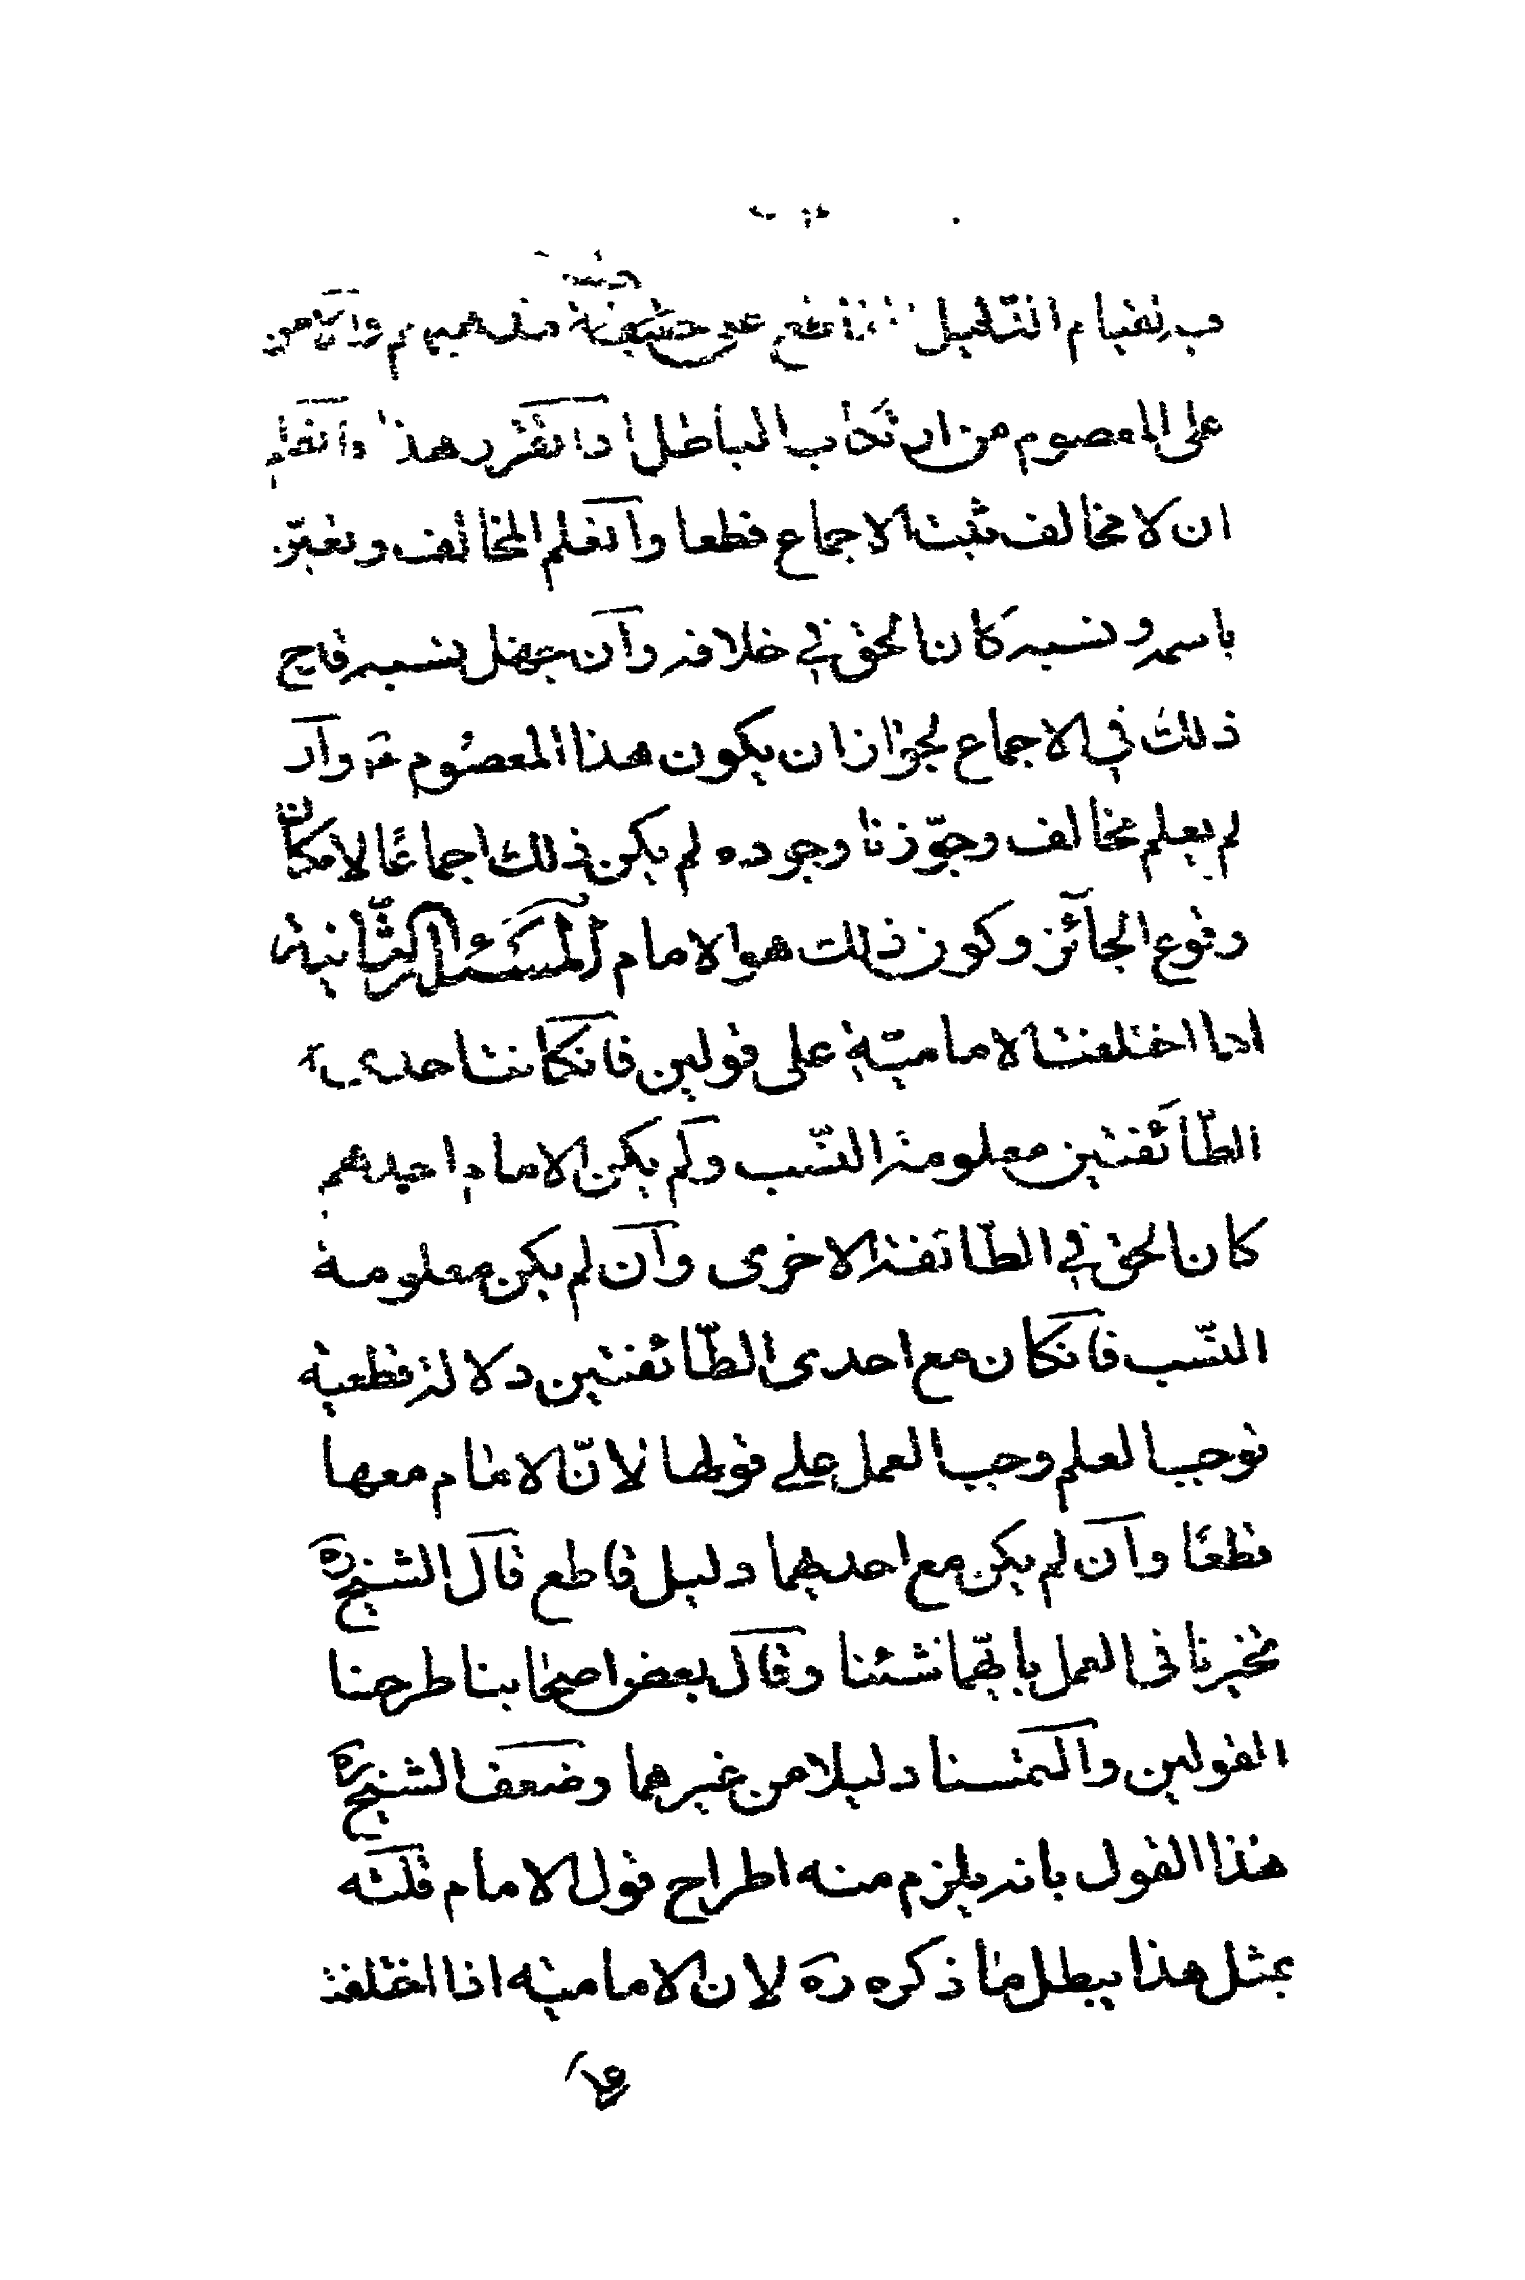 لقيام الدليل القاطع على حقيقة مذهبهم والامن
على المعصوم من ارتكاب الباطل اذا تقرر هذا فان علم
ان لا مخالف ثبت الاجماع قطعا وان علم المخالف وتعين
باسمه ونسبه كان الحق في خلافه وان جهل نسبه قدح
ذلك في الاجماع لجواز ان يكون هذا المعصوم ع وان
لم يعلم مخالف وجوّزنا وجوده لم يكن ذلك اجماعًا لامكان
وقوع الجائز وكون ذلك هو الامام المسئلة الثّانية
اذا اختلفت الامامیّة على قولين فان كانت احدى
الطّائفتين معلومة النّسب ولم يكن الامام احدهم
كان الحق في الطّائفة الاخرى وان لم يكن معلومة
النّسب فان كان مع احدى الطّائفتين دلالة قطعية
توجب العلم وجب العمل على قولها لانّ الامام معها
قطعًا وان لم يكن مع احدهما دليل قاطع قال الشيخ ره
تخيرنا في العمل بايّهما شئنا وقال بعض اصحابنا طرحنا
القولين والتمسنا دليلا من غيرهما وضعف الشيخ ره
هذا القول بانه يلزم منه اطراح قول الامام قلت
بمثل هذا يبطل ما ذكره ره لان الامامية اذا اختلفت